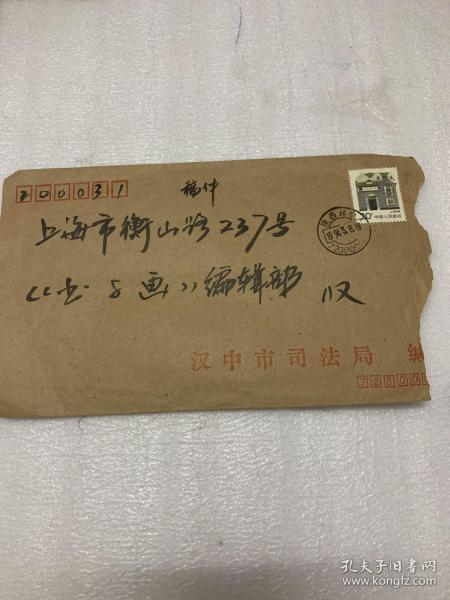 200031
稿件
上海市衡山路237号
《书与画》编辑部 收
20分
中国人民邮政
陕西汉中
汉中市司法局
72300
孔夫子旧书网
www.kongfz.com